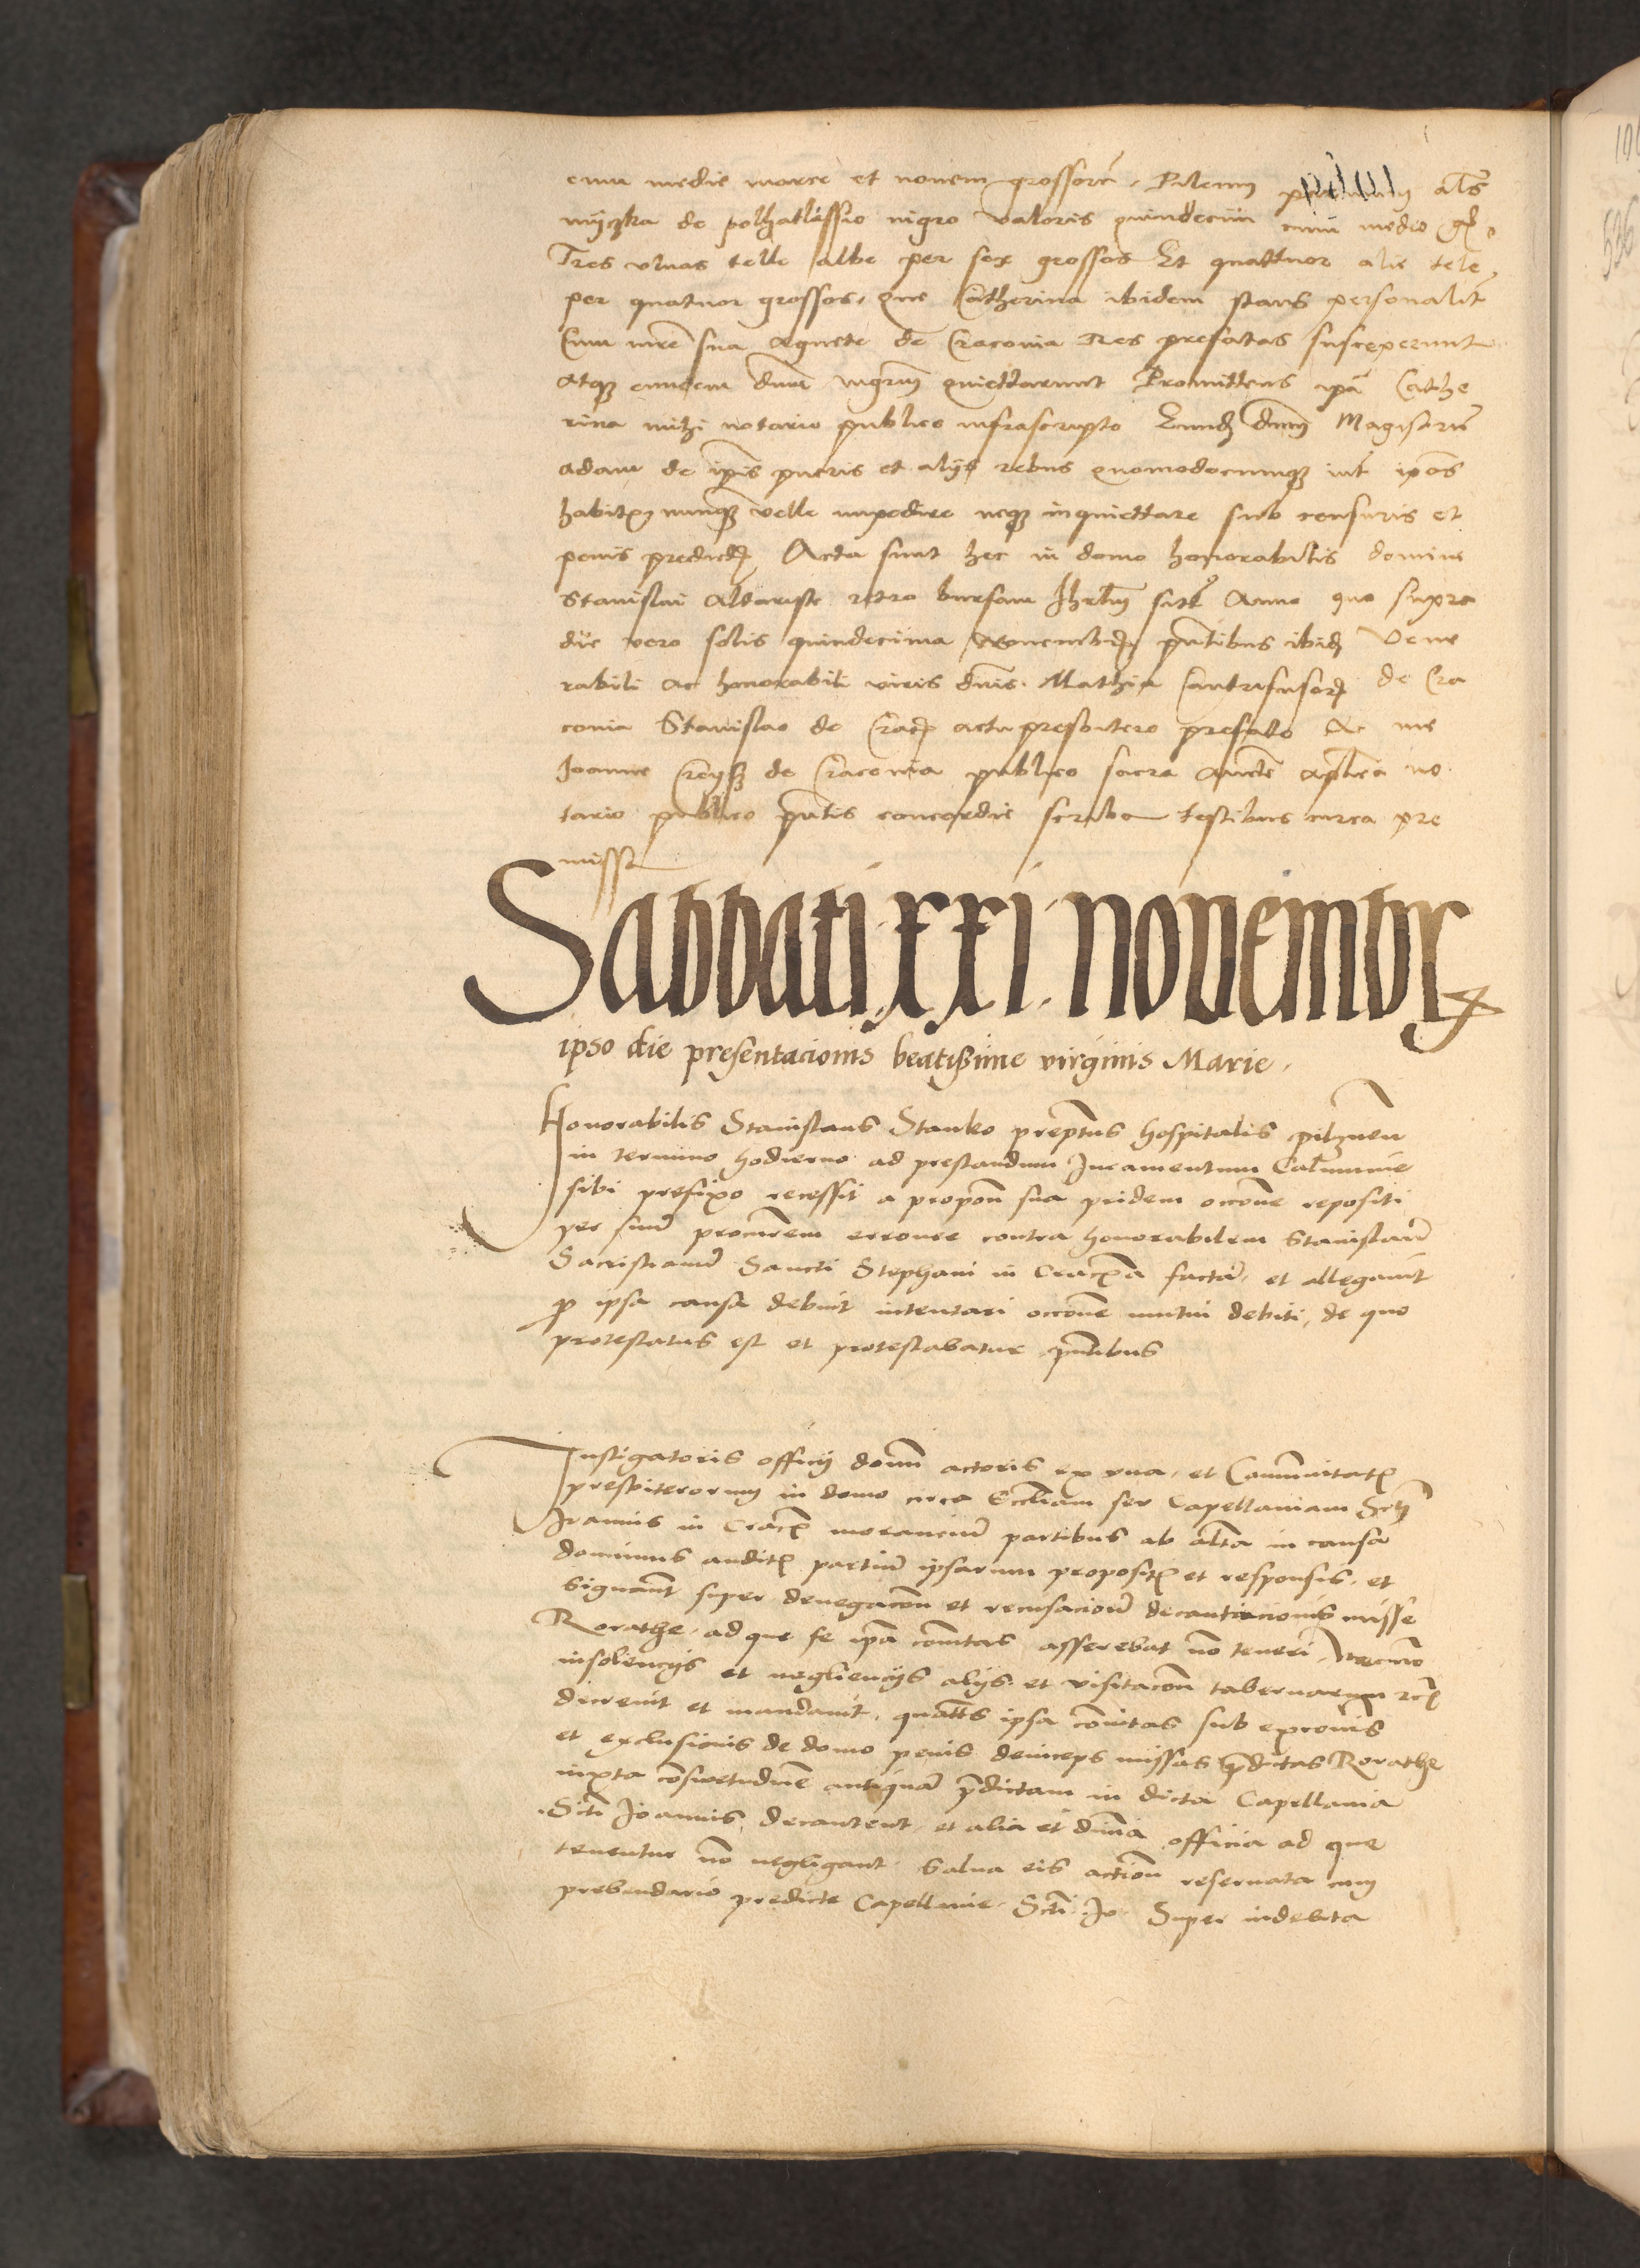 cum medie marce et nouem grossorum. Pileum als
myczka de polhatlassio nigro valoris quindecim cum medio gr.
Tres vlnas telle albe per sex grossos Et quattuor alie tele
per quatuor grossos, que Catherina ibidem stans personalit
Cum mre sua Agnete de Cracouia Res prefatas susceperunt
atq eundem dnum mgrm quiettarunt Promittens ipa Cathe
rina mihi notario publico infrascripto Eundz dnm Magistru
adam de ipis pueris et alijs rebus quomodocumq int ipos
habitz nunq velle impedire neq inquiettare sub censuris et
penis predictz Acta sunt hec in domo honorabilis domini
Stanislai Altariste retro bursam Jhrlm site Anno quo supra
die vero solis quindecima Nouembrz pntibus ibidz Vene
rabili ac honorabili viris dnis. Mathia Cantrifusorz de Cra
couia Stanislao de Crac actu presbitero prefato Ac me
Joanne de Cracouia publico sacra aucte aplica no
tario publico pntis concordie scriba testibus circa pre
missa
Sabbati xxi. novembr
ipso die presentacionis beatissime virginis Marie.
Honorabilis Stanislaus Stanko preptus hospitalis pilznen
in termino hodierno ad prestandum Juramentum Calumnie
sibi prefixo recessit a propon sua pridem occone repositi
per suum procurem erronee contra honorabilem Stanislaum
Sacristianum Sancti Stephani in Craca factam, et allegauit
ipsa causa debuit intentari occone mutui debiti, de quo
protestatus est et protestabatur pntibus
Instigatoris officij domi actoris ex vna, et Communitatz
presbiterorum in domo circa Eccliam seu Capellaniam Scti
Joannis in Crac morancium partibus ab alta in causa
dominus auditz partium ipsarum propositz et responsis, et
signant super denegacon et recusacione decantacionis misse
Rorathe, ad que se ipa comtas asserebat no teneri, Necnon
insolencijs et negliencijs alijs, et visitacon tabernarum rc
decreuit et mandauit, quatts ipsa comtas sub exconis
et exclusionis de domo penis deinceps missas pdictas Rorathe
iuxta consuetudine antiquam pdictam in dicta Capellania
Scti Joannis decantent, et alia et diuia officia ad que
tenentur no negligant. Salua eis action reseruata cum
prebendario predicte Capellanie Scti Jo. Super indebita